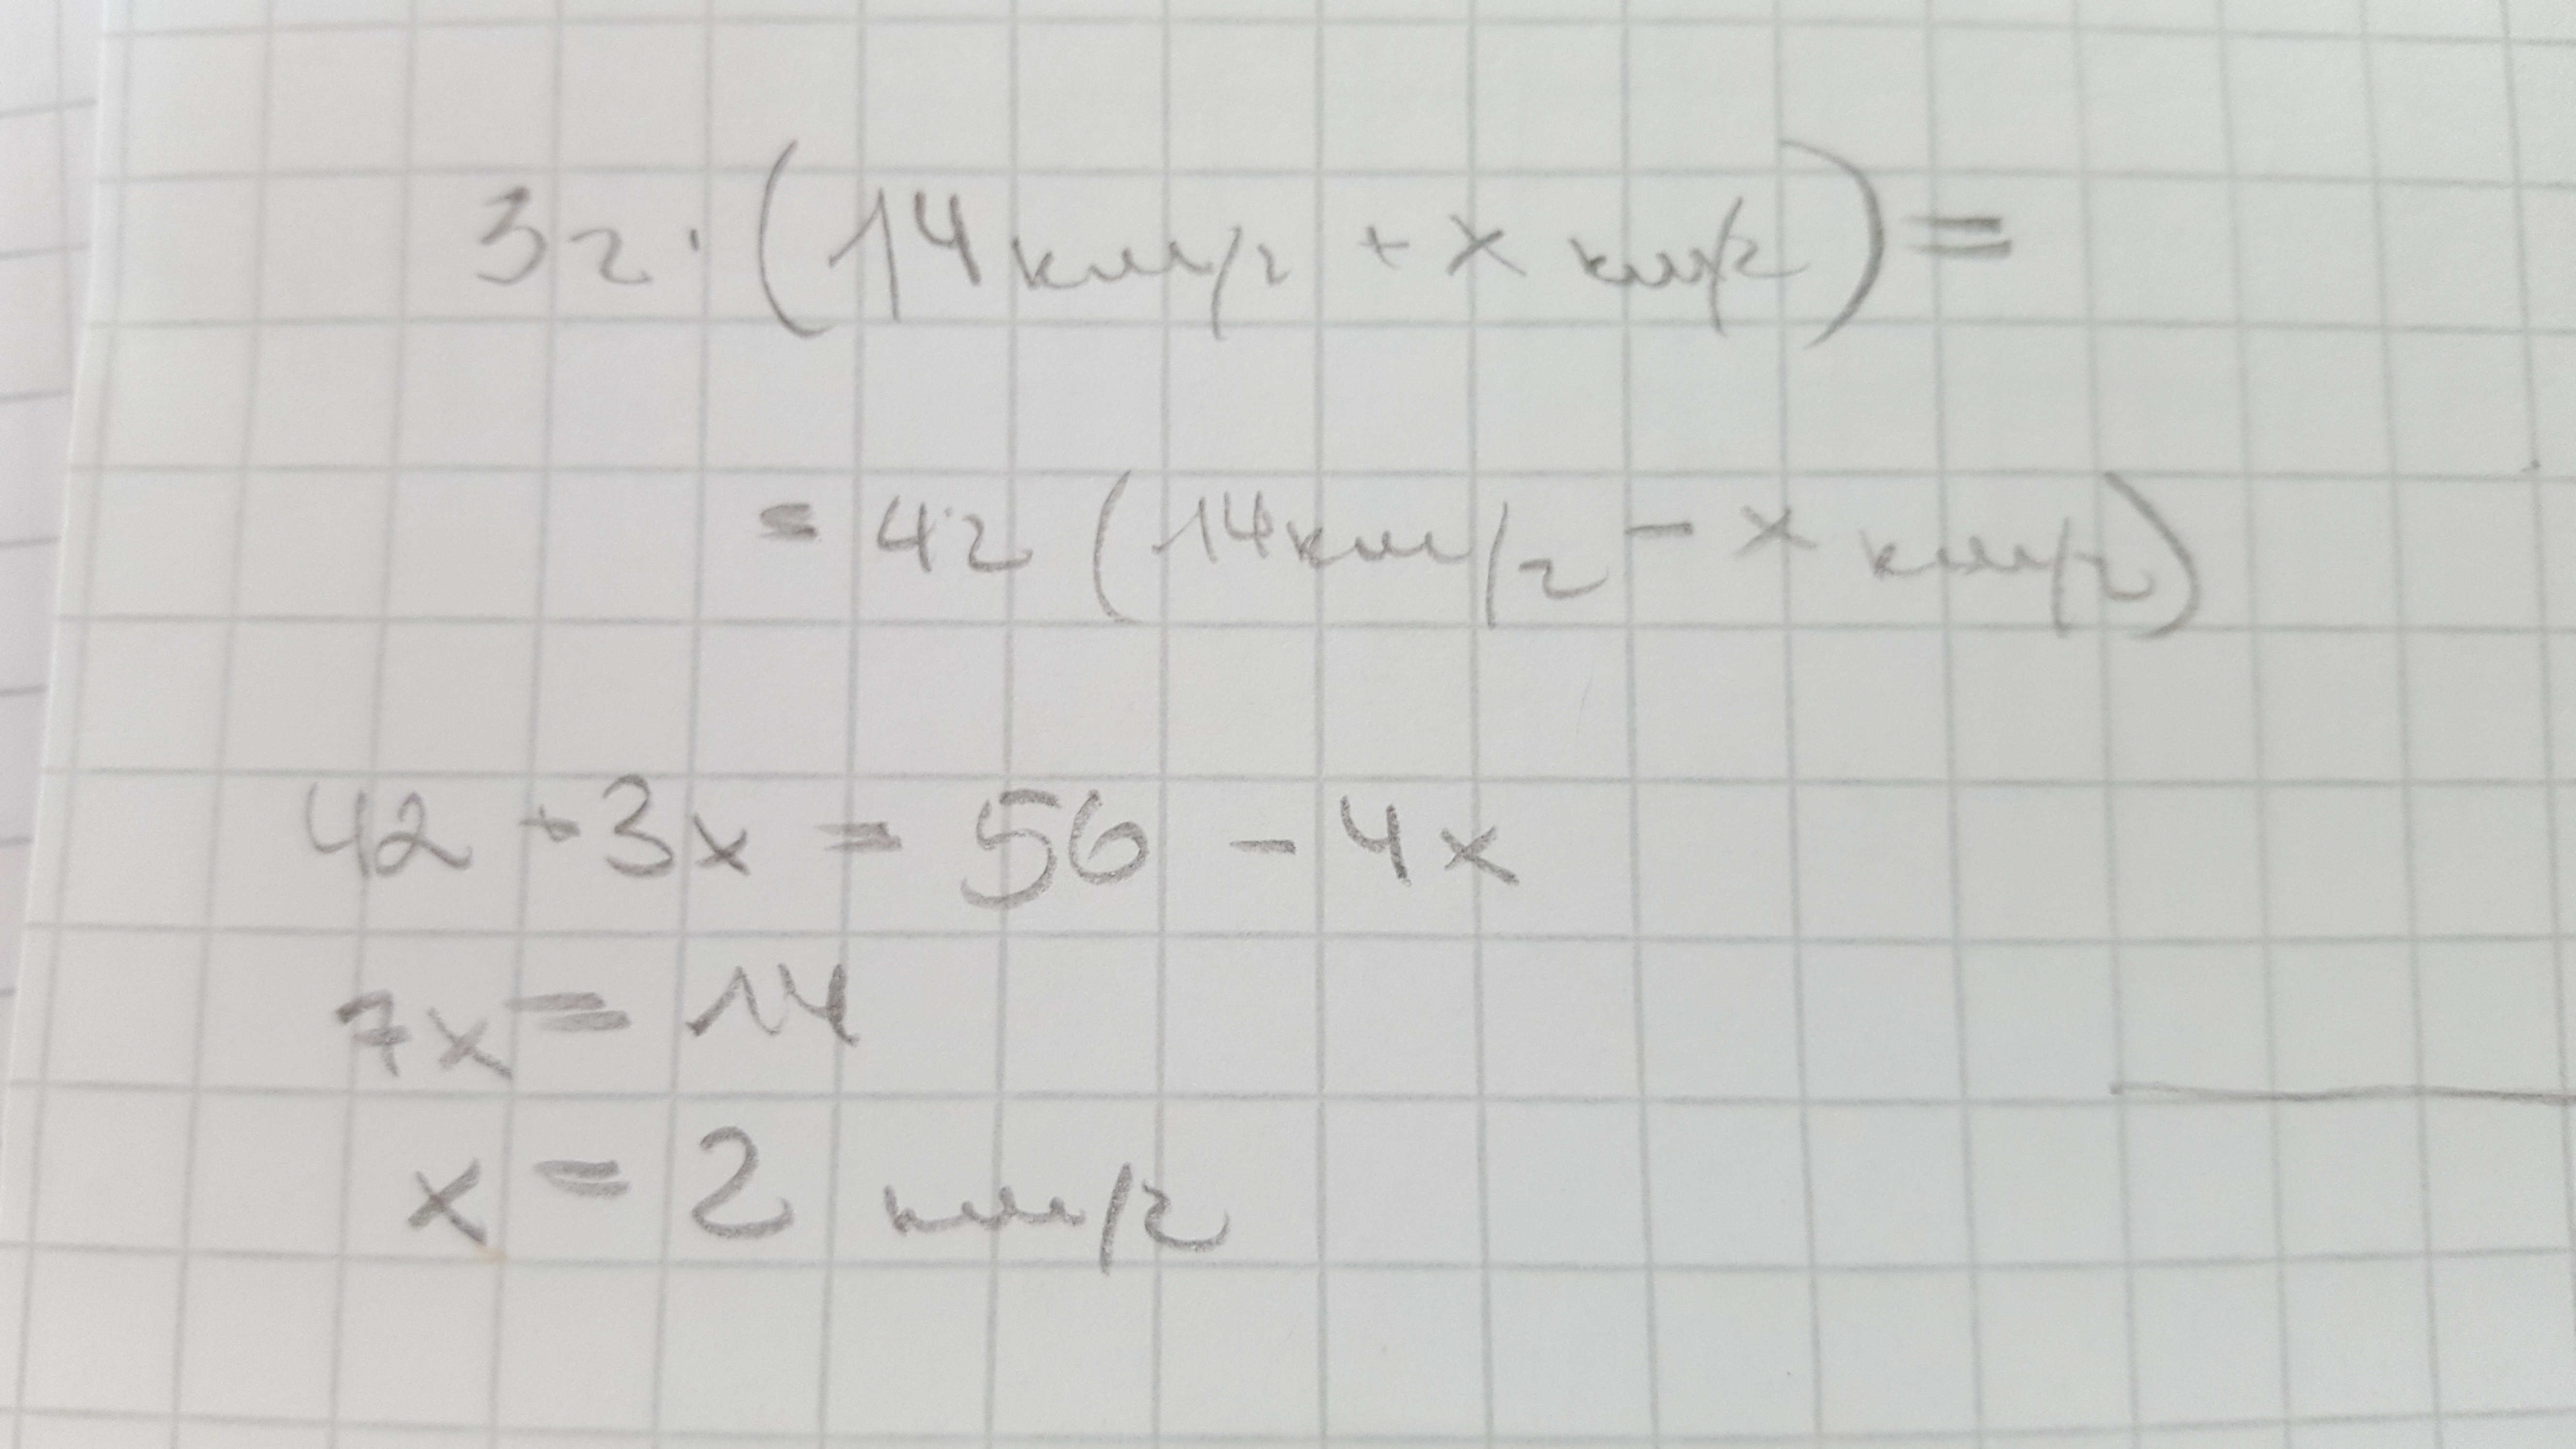 3г·(14км/г + x км/г) =
= 4г (14км/г - x км/г)
42 + 3x = 56 - 4x
7x = 14
x = 2 км/г